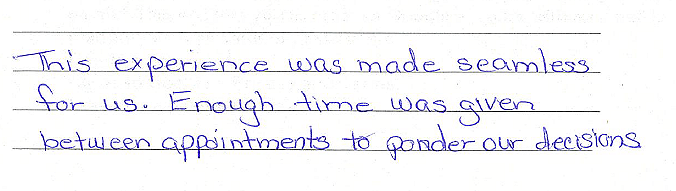 This experience was made seamless
for us. Enough time was given
between appointments to ponder our decisions